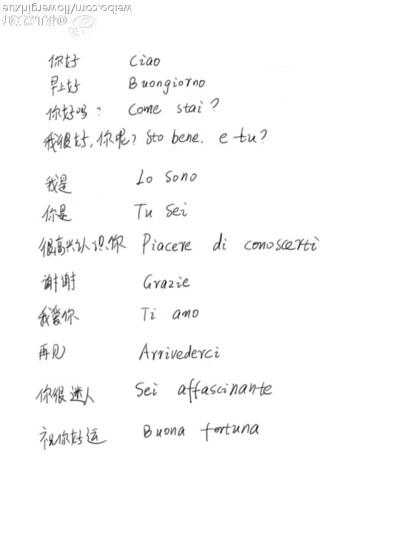 weibo.com/flowerginxue
你好 Ciao
早上好 Buongiorno
你好吗? Come stai?
我很好,你呢? Sto bene. e tu?
我是 Lo sono
你是 Tu sei
很高兴认识你 Piacere di conoscerti
谢谢 Grazie
我爱你 Ti amo
再见 Arrivederci
你很迷人 Sei affascinante
祝你好运 Buona fortuna